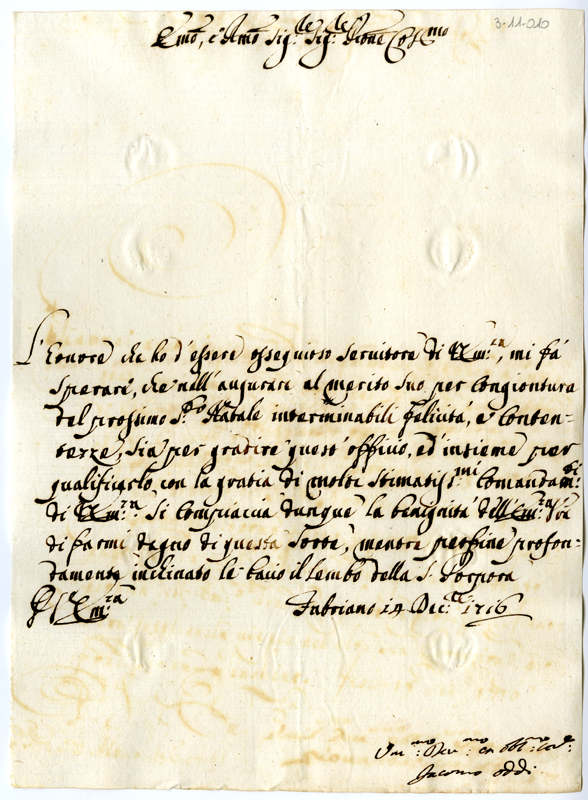 3-11-010
Emo, e Rmo Sig.re Sig.re Prone Col.mo
L'honore che ho d'essere ossequioso servitore di V. Em.za, mi fà
sperare, che nell'augurare al merito suo per congiontura
del prossimo S.to Natale interminabili felicità, e conten=
tezze, sia per gradire quest'offitio, ed'insieme per
qualificarlo con la gratia di molti stimatiss.mi comandam.ti
di V. Em.za Si compiaccia dunque la benignità dell'Em.za Vra
di farmi degno di questa sorte, mentre per fine profon=
damente inclinato le bacio il lembo della S. Porpora
Di V. Em.za
Fabriano 14 Dec.re 1716
Um.mo Dev.mo et obl.mo
Jacomo Oddi